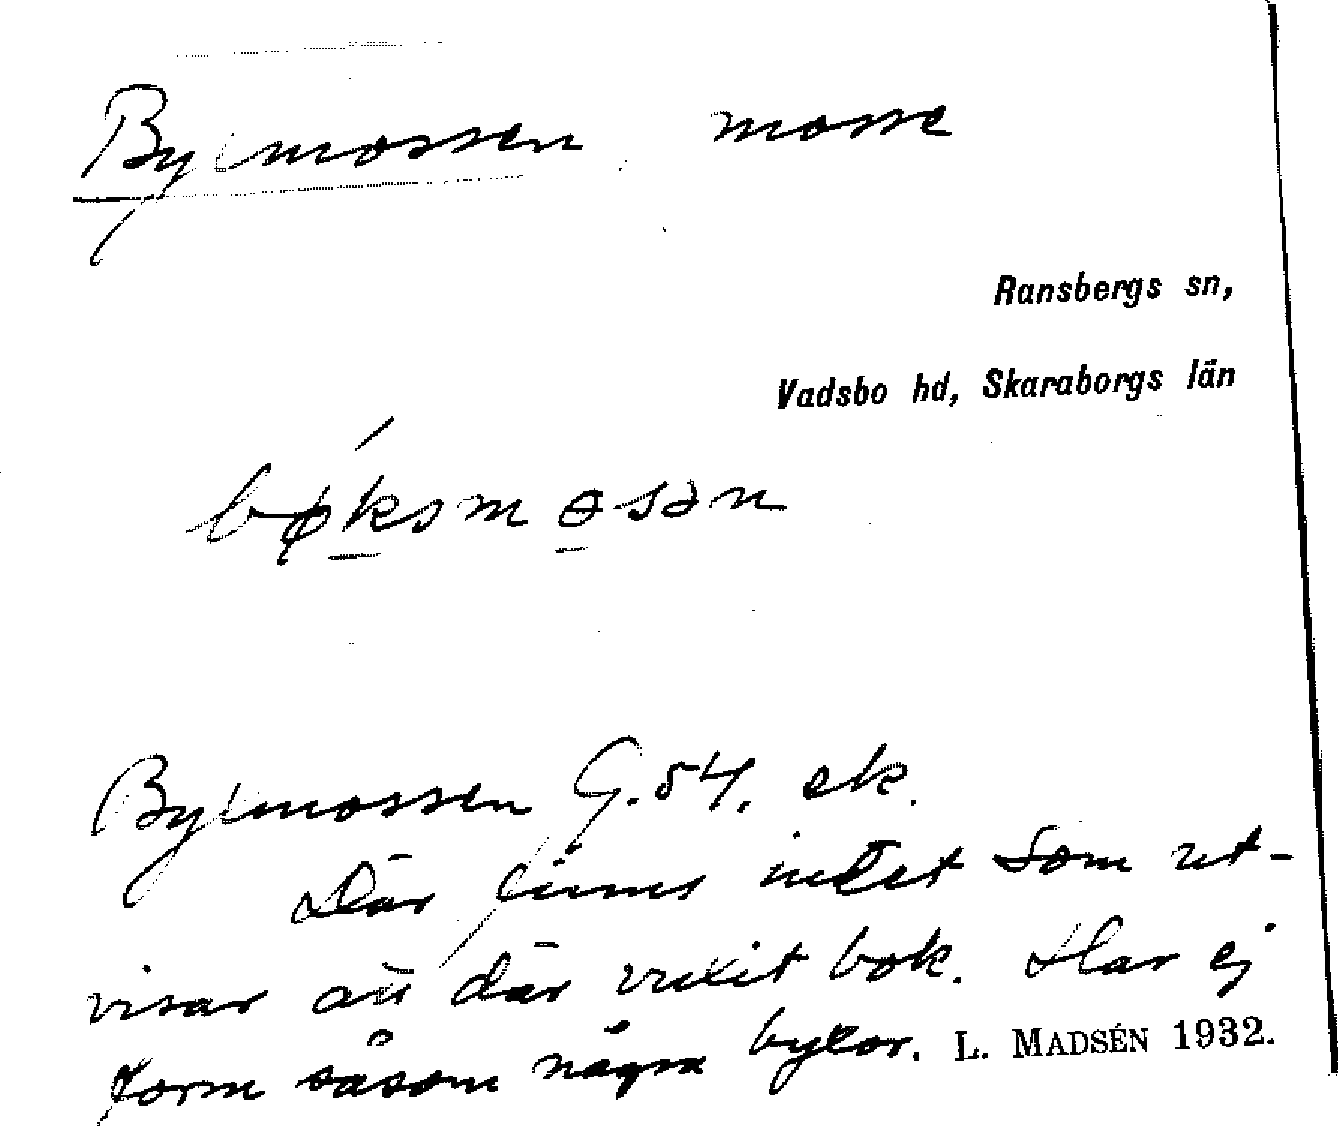 Bylmossen mosse
Ransbergs sn,
Vadsbo hd, Skaraborgs län
bøksmosən
Bylmossen G.54. ek.
Där finns intet som ut-
visar att där vuxit bok. Har ej
form såsom några bylor. L. MADSÉN 1932.